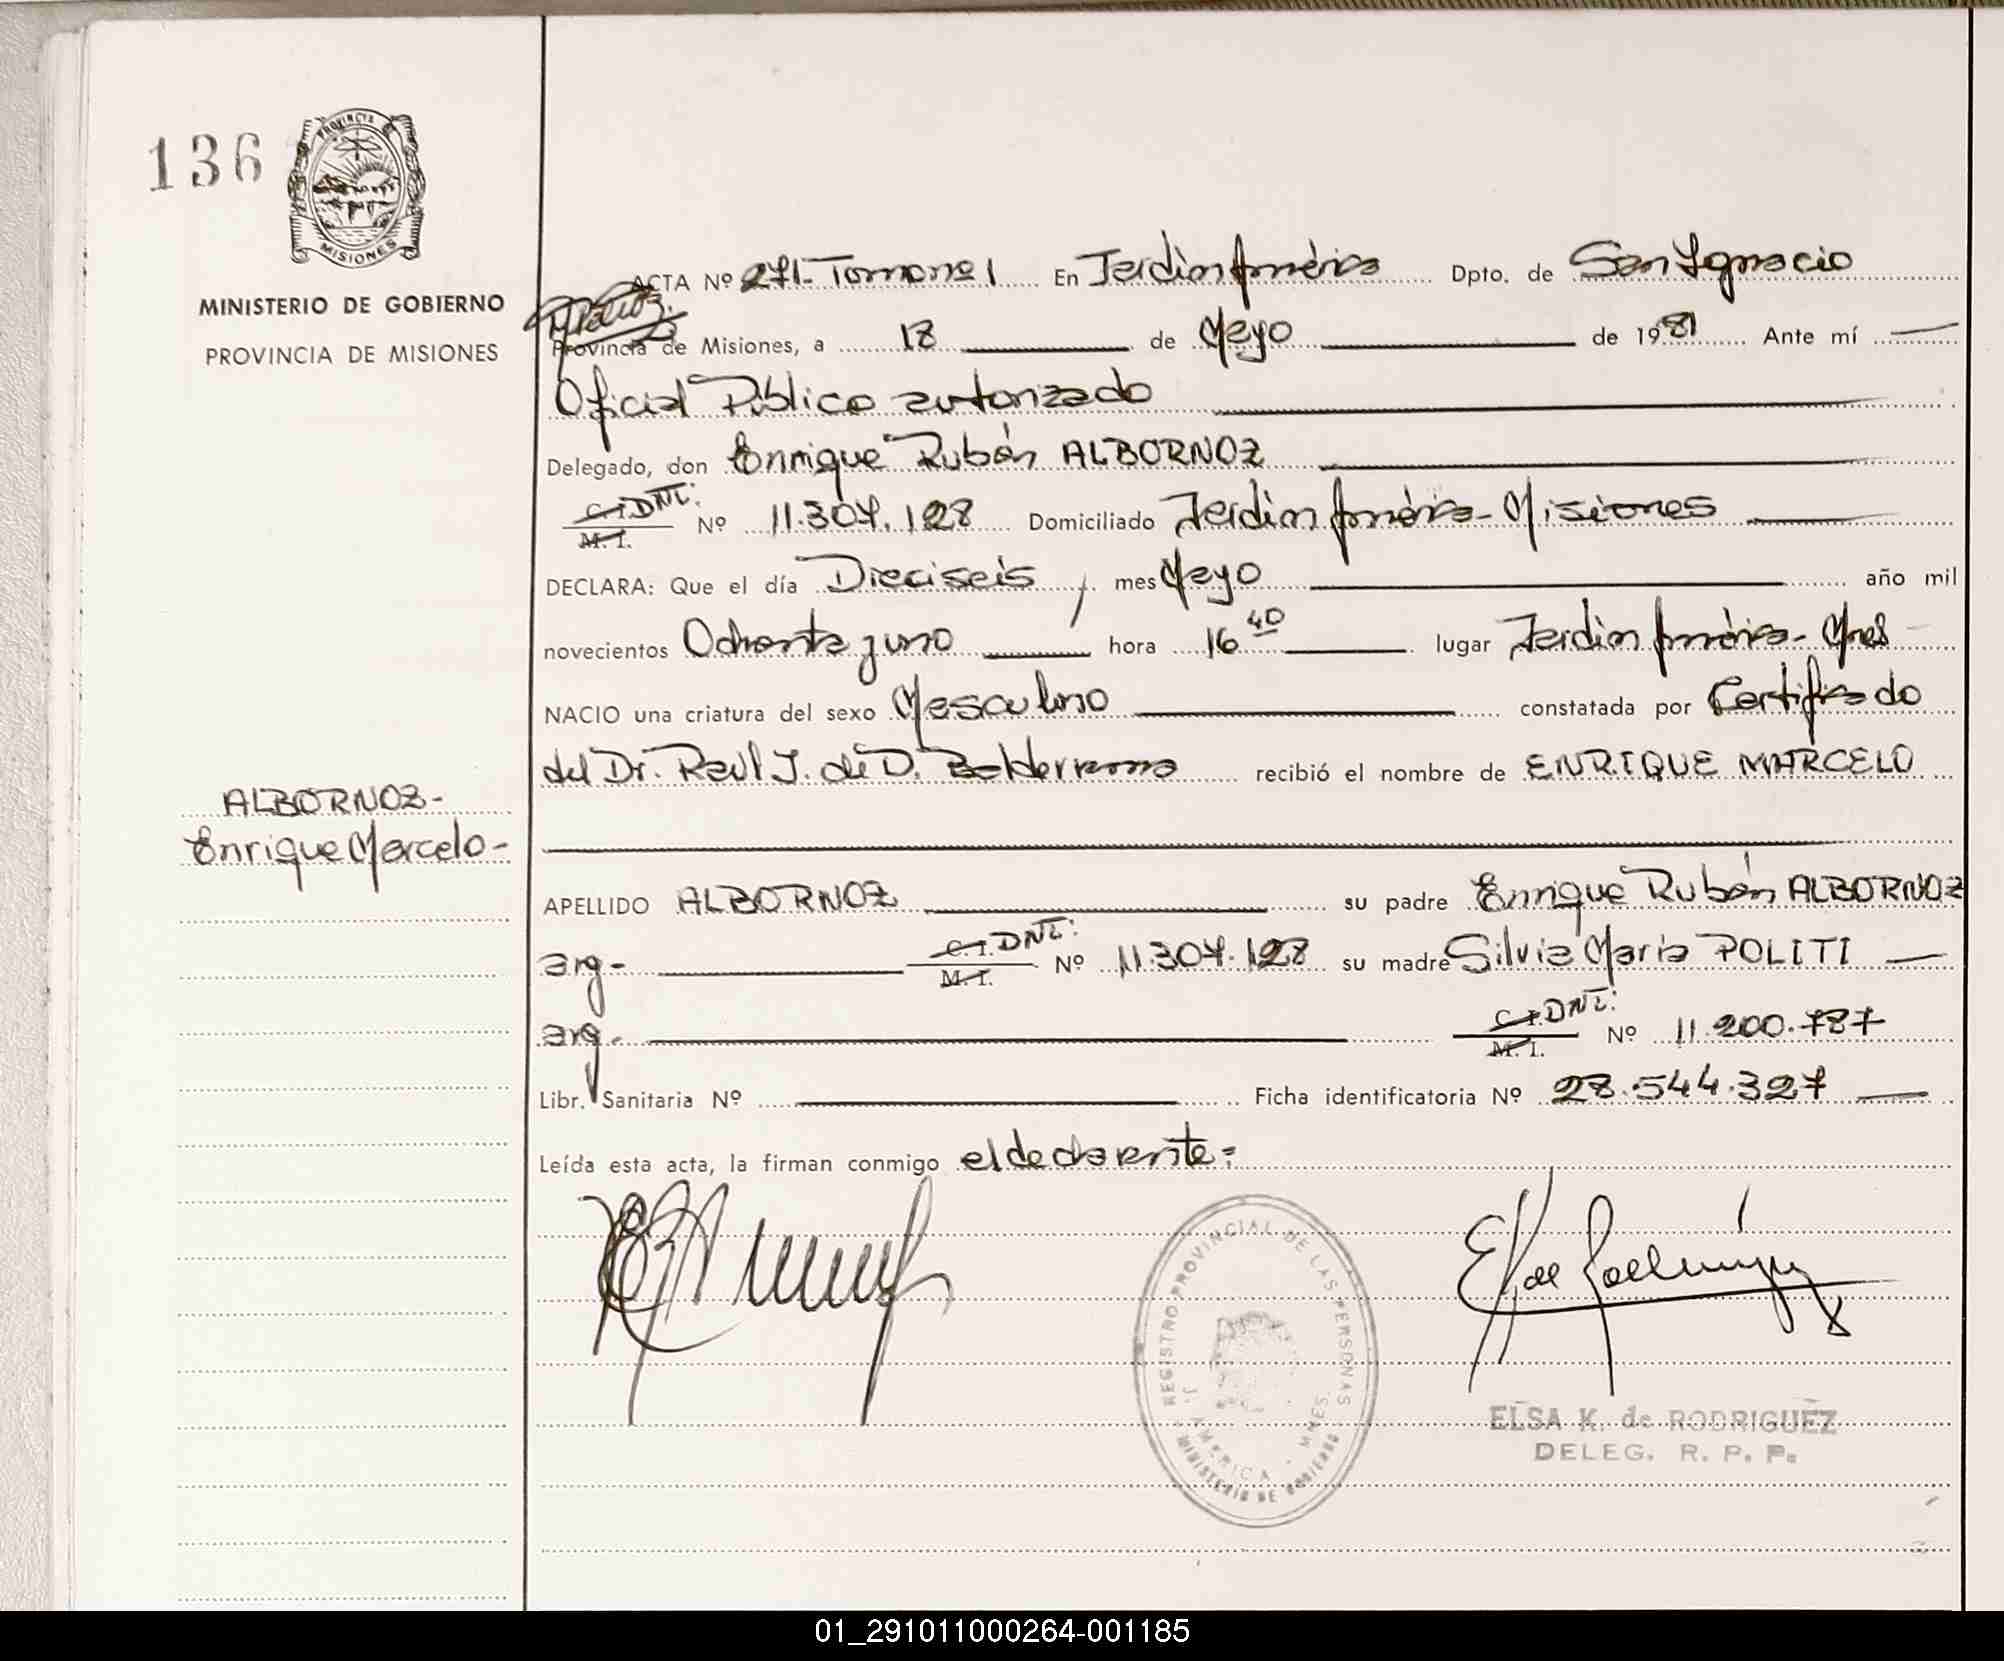 136
PROVINCIA
MISIONES
MINISTERIO DE GOBIERNO
PROVINCIA DE MISIONES
ALBORNOZ-
Enrique Marcelo-
ACTA Nº 271- Tomo nº 1 En Jardín América Dpto. de San Ignacio
Provincia de Misiones, a 18 de Mayo de 1981 Ante mí
Oficial Público autorizado
Delegado, don Enrique Rubén ALBORNOZ
C.I. DNI: M.I. Nº 11.304.128 Domiciliado Jardín América- Misiones
DECLARA: Que el día Dieciseis, mes Mayo año mil
novecientos Ochenta y uno hora 16 40 lugar Jardín América- Mnes
NACIO una criatura del sexo Masculino constatada por Certificado
del Dr. Raúl J. de D. Balderrama recibió el nombre de ENRIQUE MARCELO
APELLIDO ALBORNOZ su padre Enrique Rubén ALBORNOZ
arg- C.I. DNI: M.I. Nº 11.304.128 su madre Silvia María POLITI
arg. C.I. DNI: M.I. Nº 11.200.787
Libr. Sanitaria Nº Ficha identificatoria Nº 28.544.327
Leída esta acta, la firman conmigo el declarante:
REGISTRO PROVINCIAL DE LAS PERSONAS
J. AMERICA - MNES.
MINISTERIO DE GOBIERNO
ELSA K. de RODRIGUEZ
DELEG. R. P. P.
01_291011000264-001185